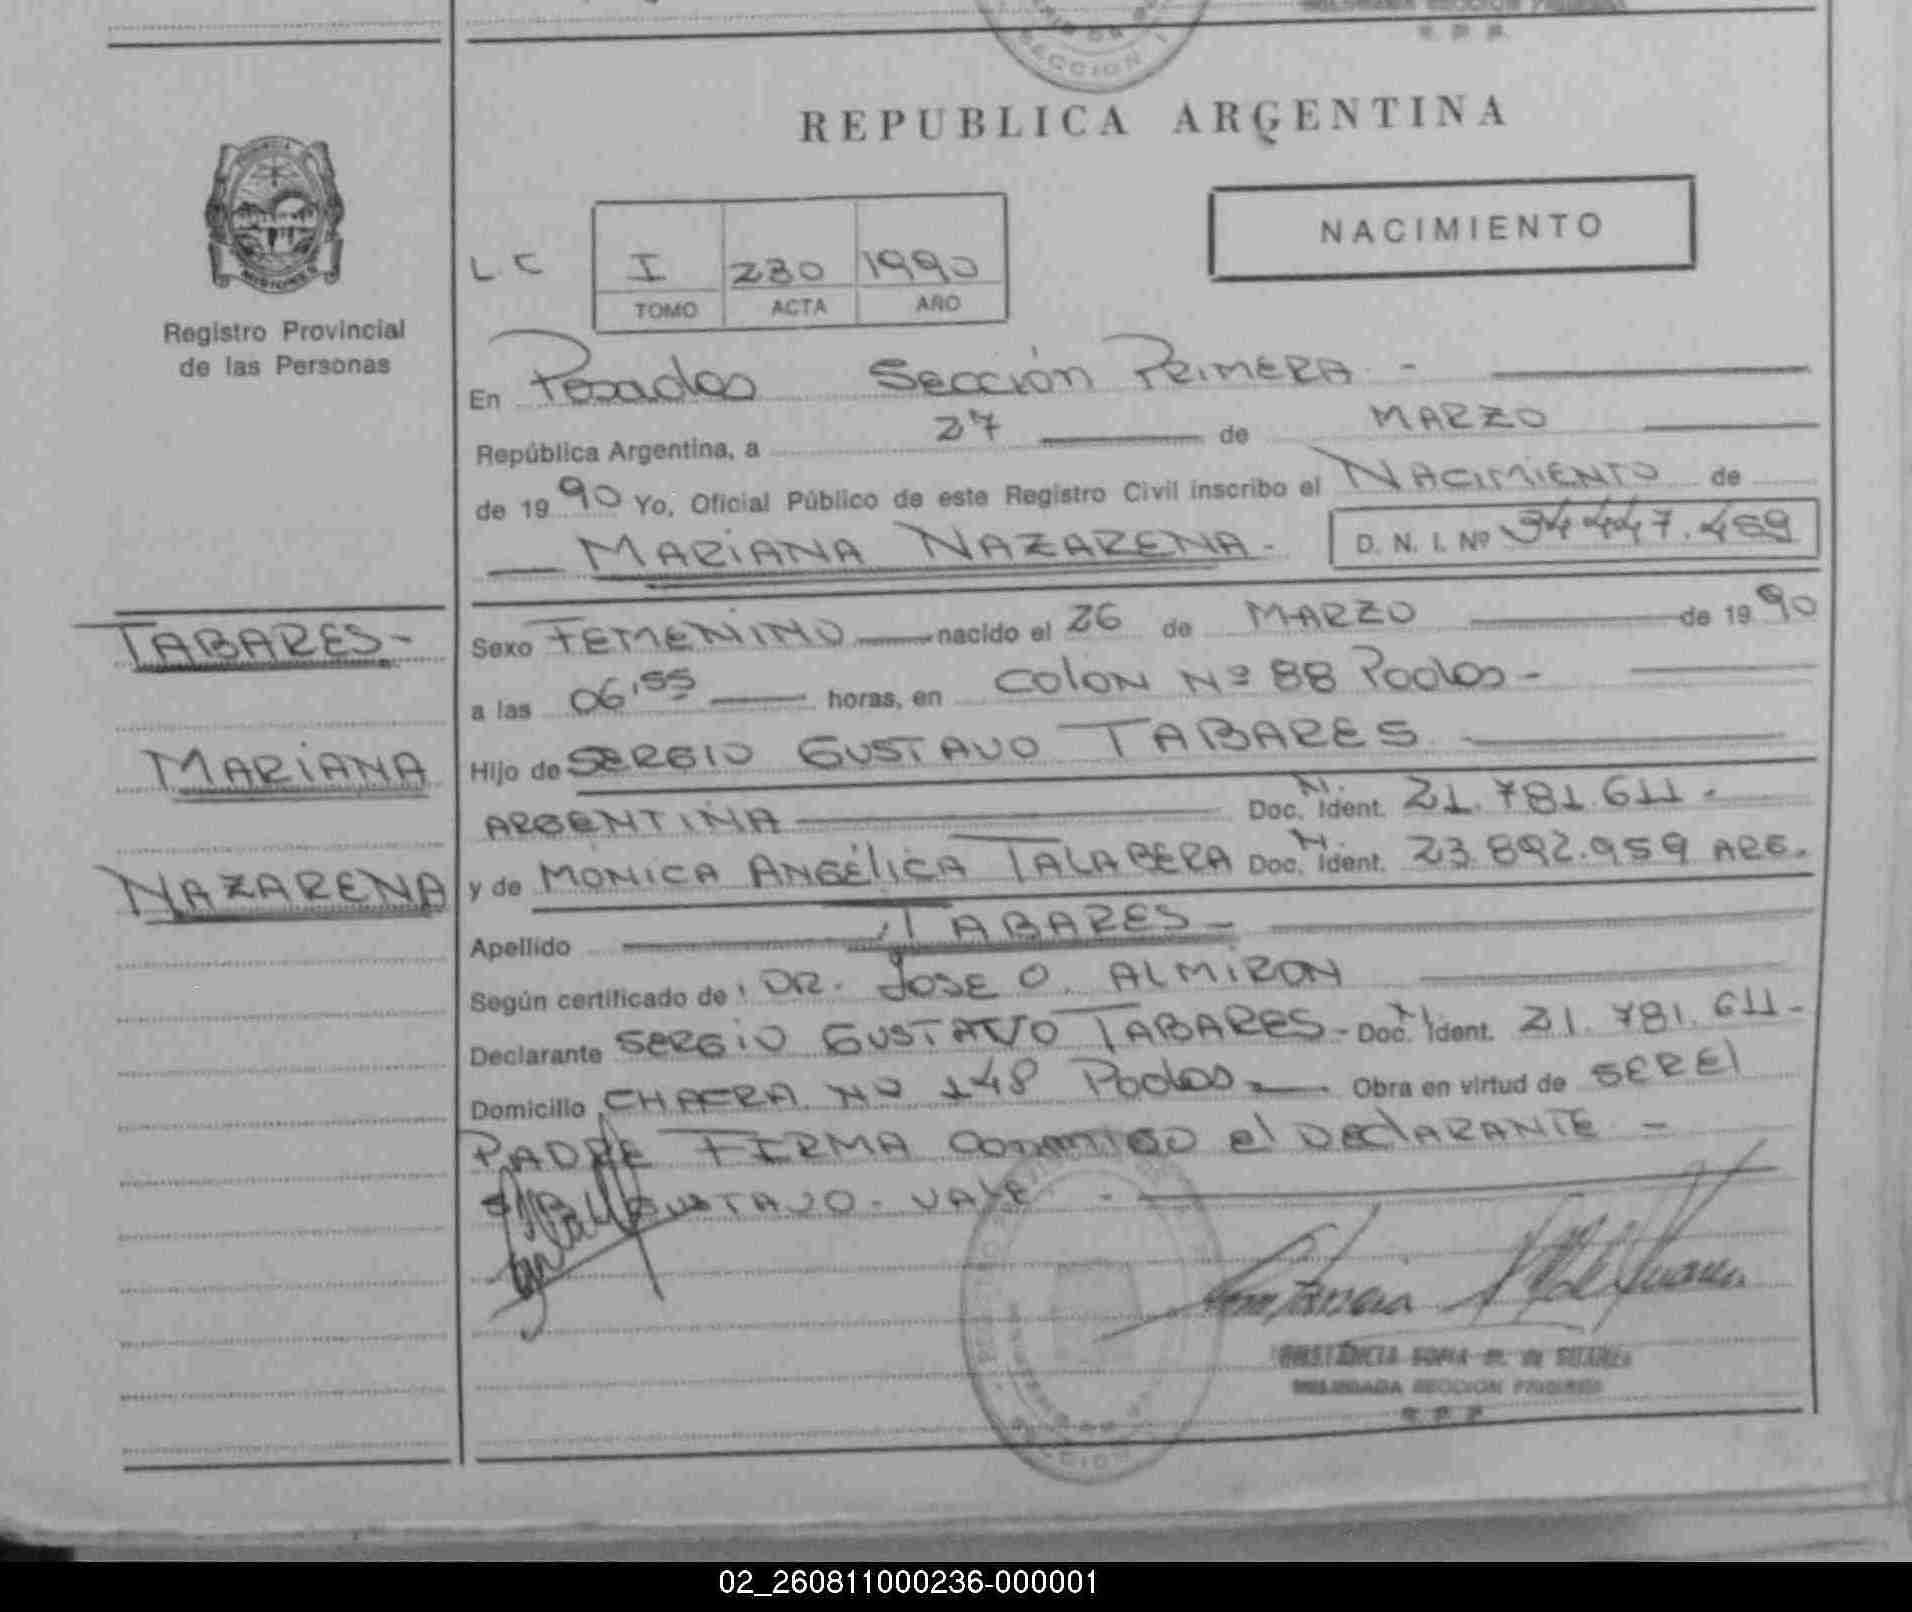 REPUBLICA ARGENTINA
NACIMIENTO
L.C I 230 1990
TOMO ACTA AÑO
Registro Provincial
de las Personas
En Posadas Sección PRIMERA -
República Argentina, a 27 de MARZO
de 1990 Yo, Oficial Público de este Registro Civil inscribo el NACIMIENTO de
MARIANA NAZARENA - D. N. I. Nº 34447.469
TABARES -
MARIANA
NAZARENA
Sexo FEMENINO nacido el 26 de MARZO de 1990
a las 06,55 horas, en COLON Nº 88 Pdas -
Hijo de SERGIO GUSTAVO TABARES
ARGENTINA Doc. N. Ident. 21.781.611 -
y de MONICA ANGÉLICA TALABERA Doc. N. Ident. 23.892.959 ARG.
Apellido TABARES -
Según certificado de: DR. JOSE O. ALMIRON
Declarante SERGIO GUSTAVO TABARES - Doc. N. Ident. 21.781.611 -
Domicilio CHACRA Nº 148 Pdas - Obra en virtud de SER El
PADRE FIRMA CONMIGO el DECLARANTE -
GUSTAVO - VALE -
CONSTANCIA SOFIA M. de SUAREZ
DELEGADA SECCION PRIMERA
R. P. P.
02_260811000236-000001